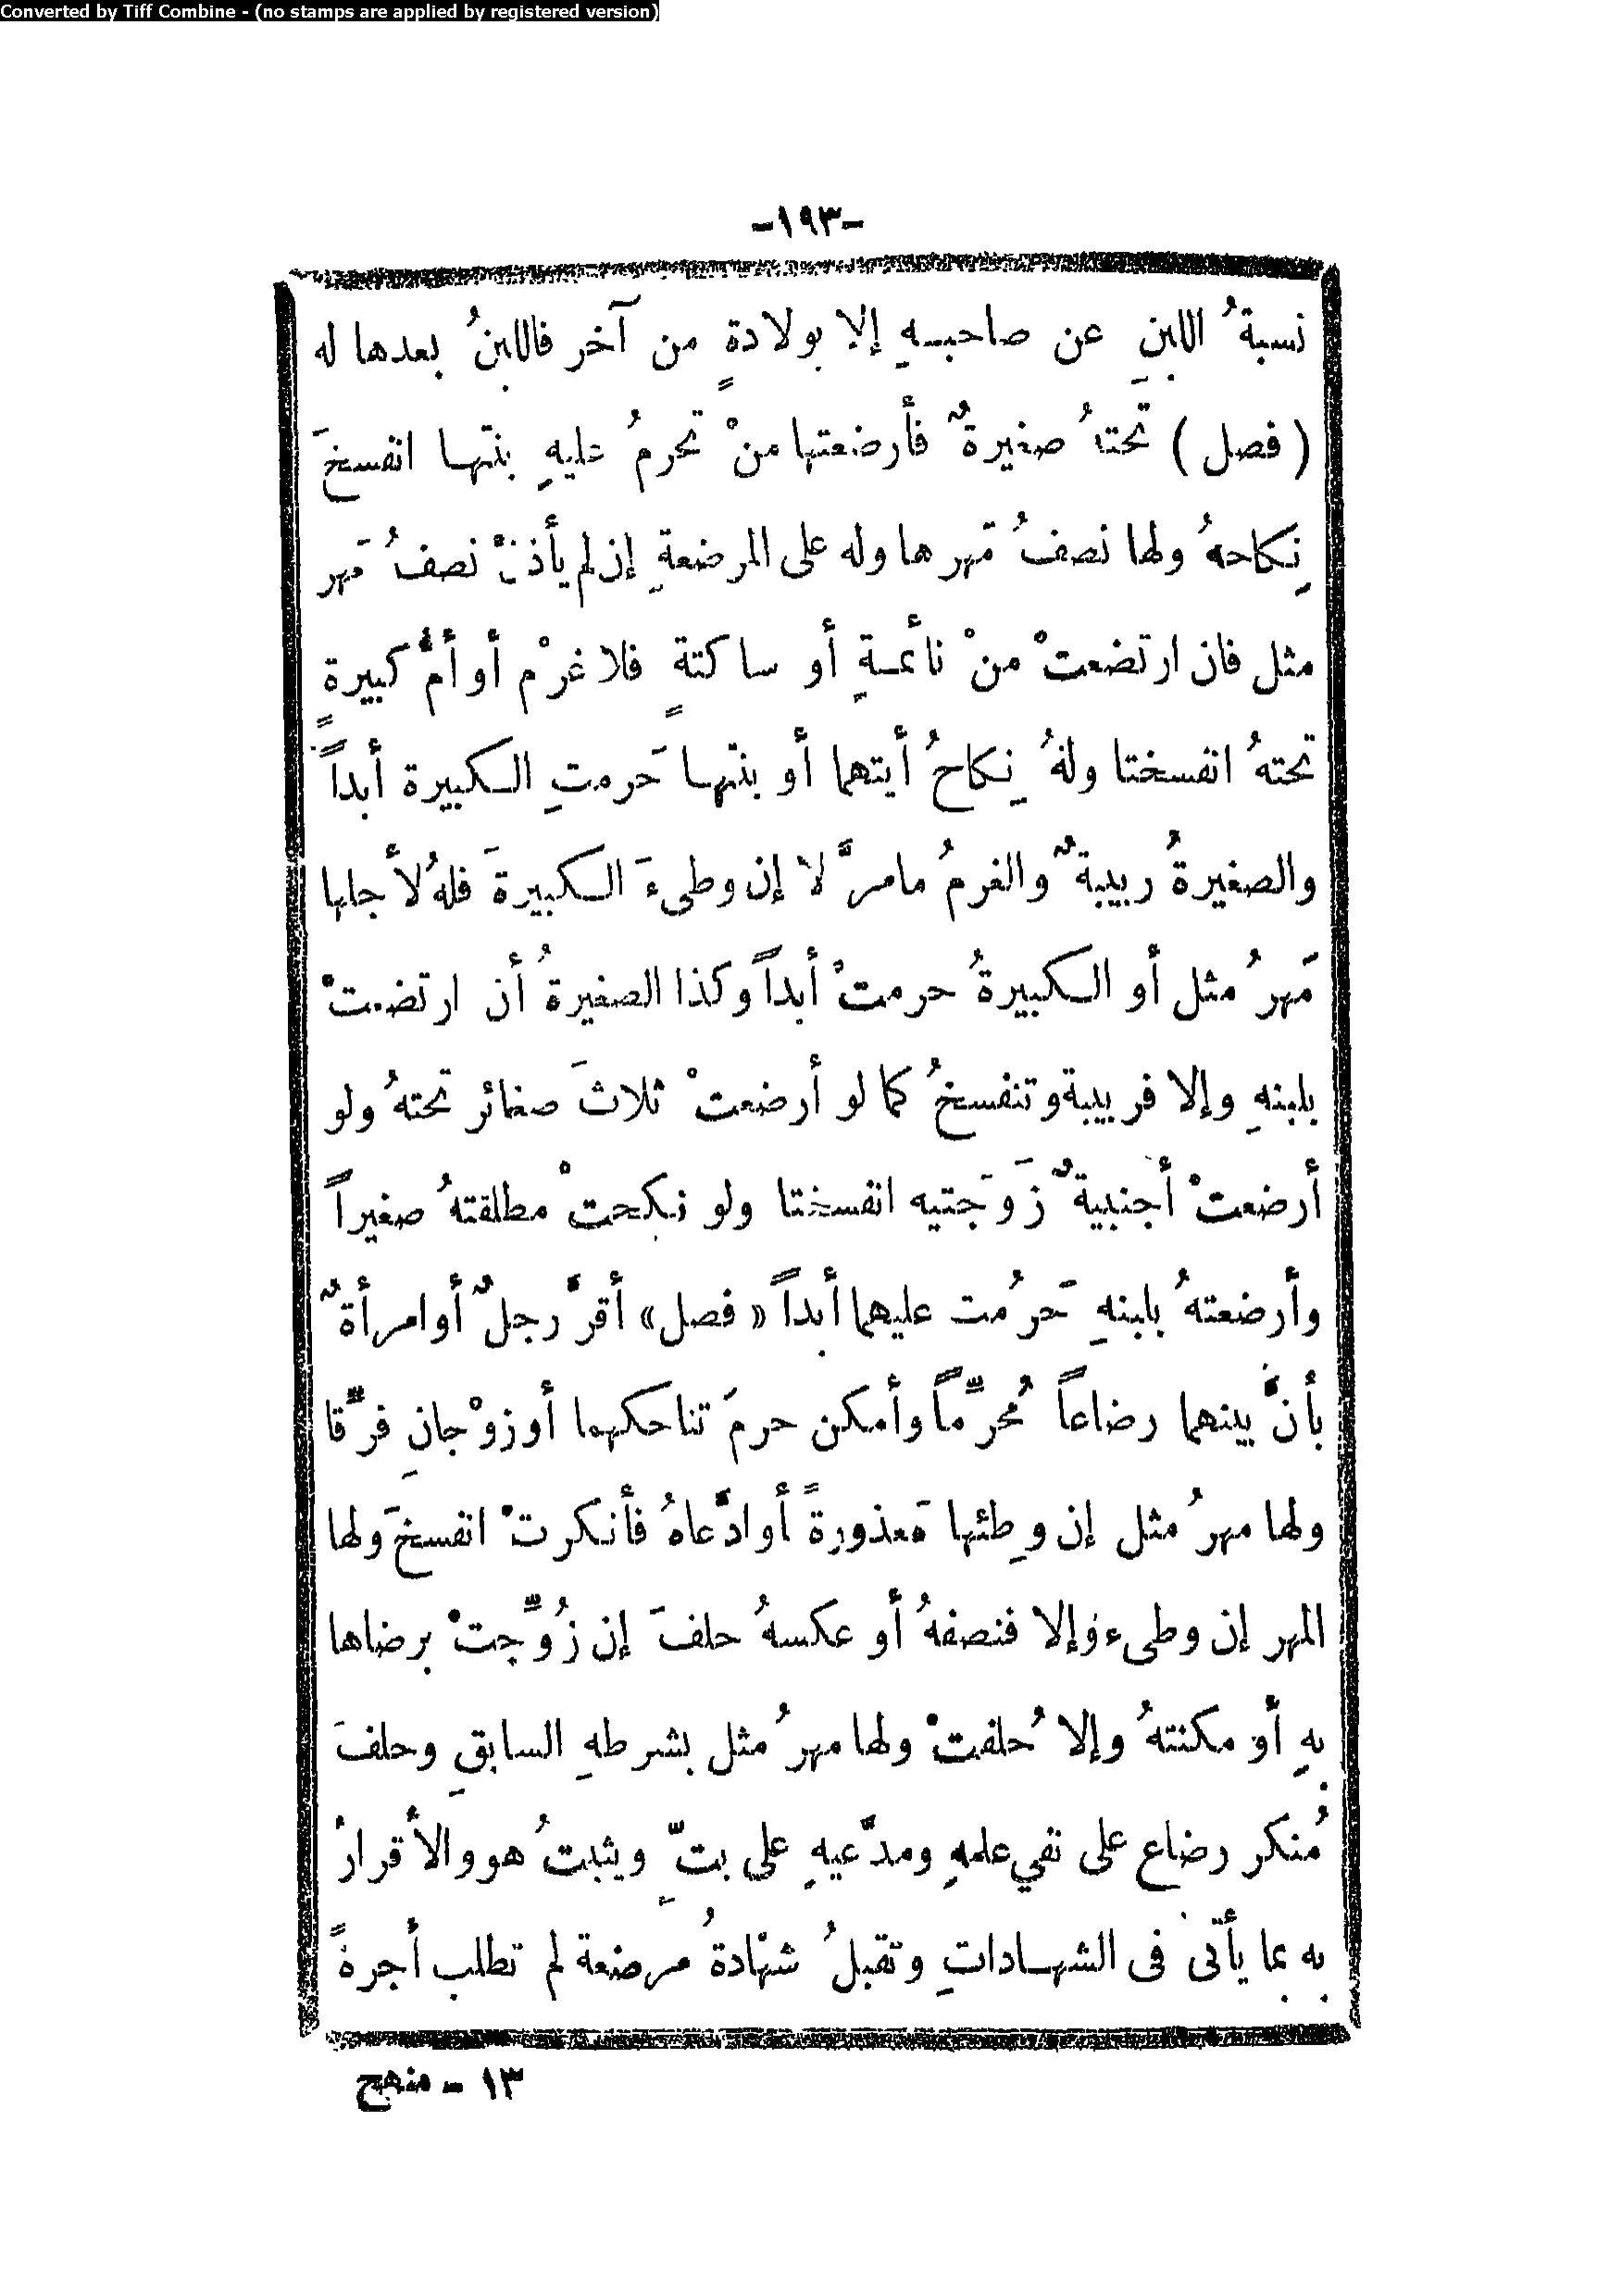 Converted by Tiff Combine - (no stamps are applied by registered version)
-١٩٣-
نسبةُ اللبنِ عن صاحبـهِ إلا بولادةٍ من آخر فاللبنُ بعدها له
(فصل) تحتهُ صغيرةٌ فأرضعتها منْ تحرمُ عليهِ بنتهـا انفسخَ
نِكاحهُ ولها نصفُ مَهرها وله على المرضعةِ إن لم يأذنْ نصفُ مَهر
مثل فان ارتضعتْ منْ نائمـةٍ أو ساكتةٍ فلا غرْم أو أمُّ كبيرةٍ
تحتهُ انفسختا ولهُ نِكاحُ أيتهما أو بنتهـا حَرمتِ الـكبيرة أبداً
والصغيرةُ ربيبةٌ والغرمُ مامرَّ لا إن وطىءَ الـكبيرةَ فلهُ لأجلها
مَهرُ مثل أو الـكبيرةُ حرمتْ أبداً وكذا الصغيرةُ أن ارتضعتْ
بلبنهِ وإلا فربيبة وتنفسخُ كما لو أرضعتْ ثلاثَ صغائر تحتهُ ولو
أرضعتْ أجنبيةٌ زَوجَتيه انفسختا ولو نكحتْ مطلقتهُ صغيراً
وأرضعتهُ بلبنهِ حَرُمت عليهما أبداً «فصل» أقرَّ رجلٌ أو امرأةٌ
بأنَّ بينهما رضاعاً مُحرِّماً وأمكن حرمَ تناكحهما أو زوْجانِ فرِّقا
ولها مهرُ مثل إن وطِئها مَعذورةً أو ادَّعاهُ فأنكرتْ انفسخَ ولها
المهر إن وطىء وإلا فنصفهُ أو عكسهُ حلفَ إن زُوِّجتْ برضاها
بهِ أو مكنتهُ وإلا حُلفتْ ولها مهرُ مثل بشرطهِ السابقِ وحلفَ
مُنكر رضاع على نفي علمهِ ومدَّعيهِ على بتٍّ ويثبتُ هو والأقرارُ
به بما يأتى فى الشهـاداتِ وتقبلُ شهادةُ مرضعة لم تطلب أجرةً
١٣ - منهج